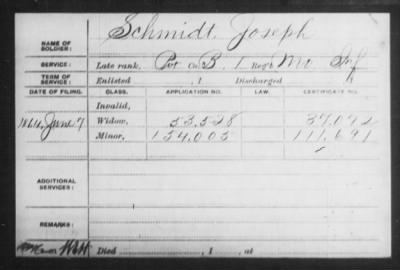 Schmidt, Joseph
NAME OF SOLDIER:
SERVICE: Late rank, Pvt Co. B, 1 Reg't Mo Inf
TERM OF SERVICE: Enlisted , 1 Discharged , 1
DATE OF FILING. CLASS. APPLICATION NO. LAW. CERTIFICATE NO.
Invalid,
1864, June 7 Widow, 53.528 37.092
Minor, 154.005 111.691
ADDITIONAL SERVICES:
REMARKS:
Died , 1 , at